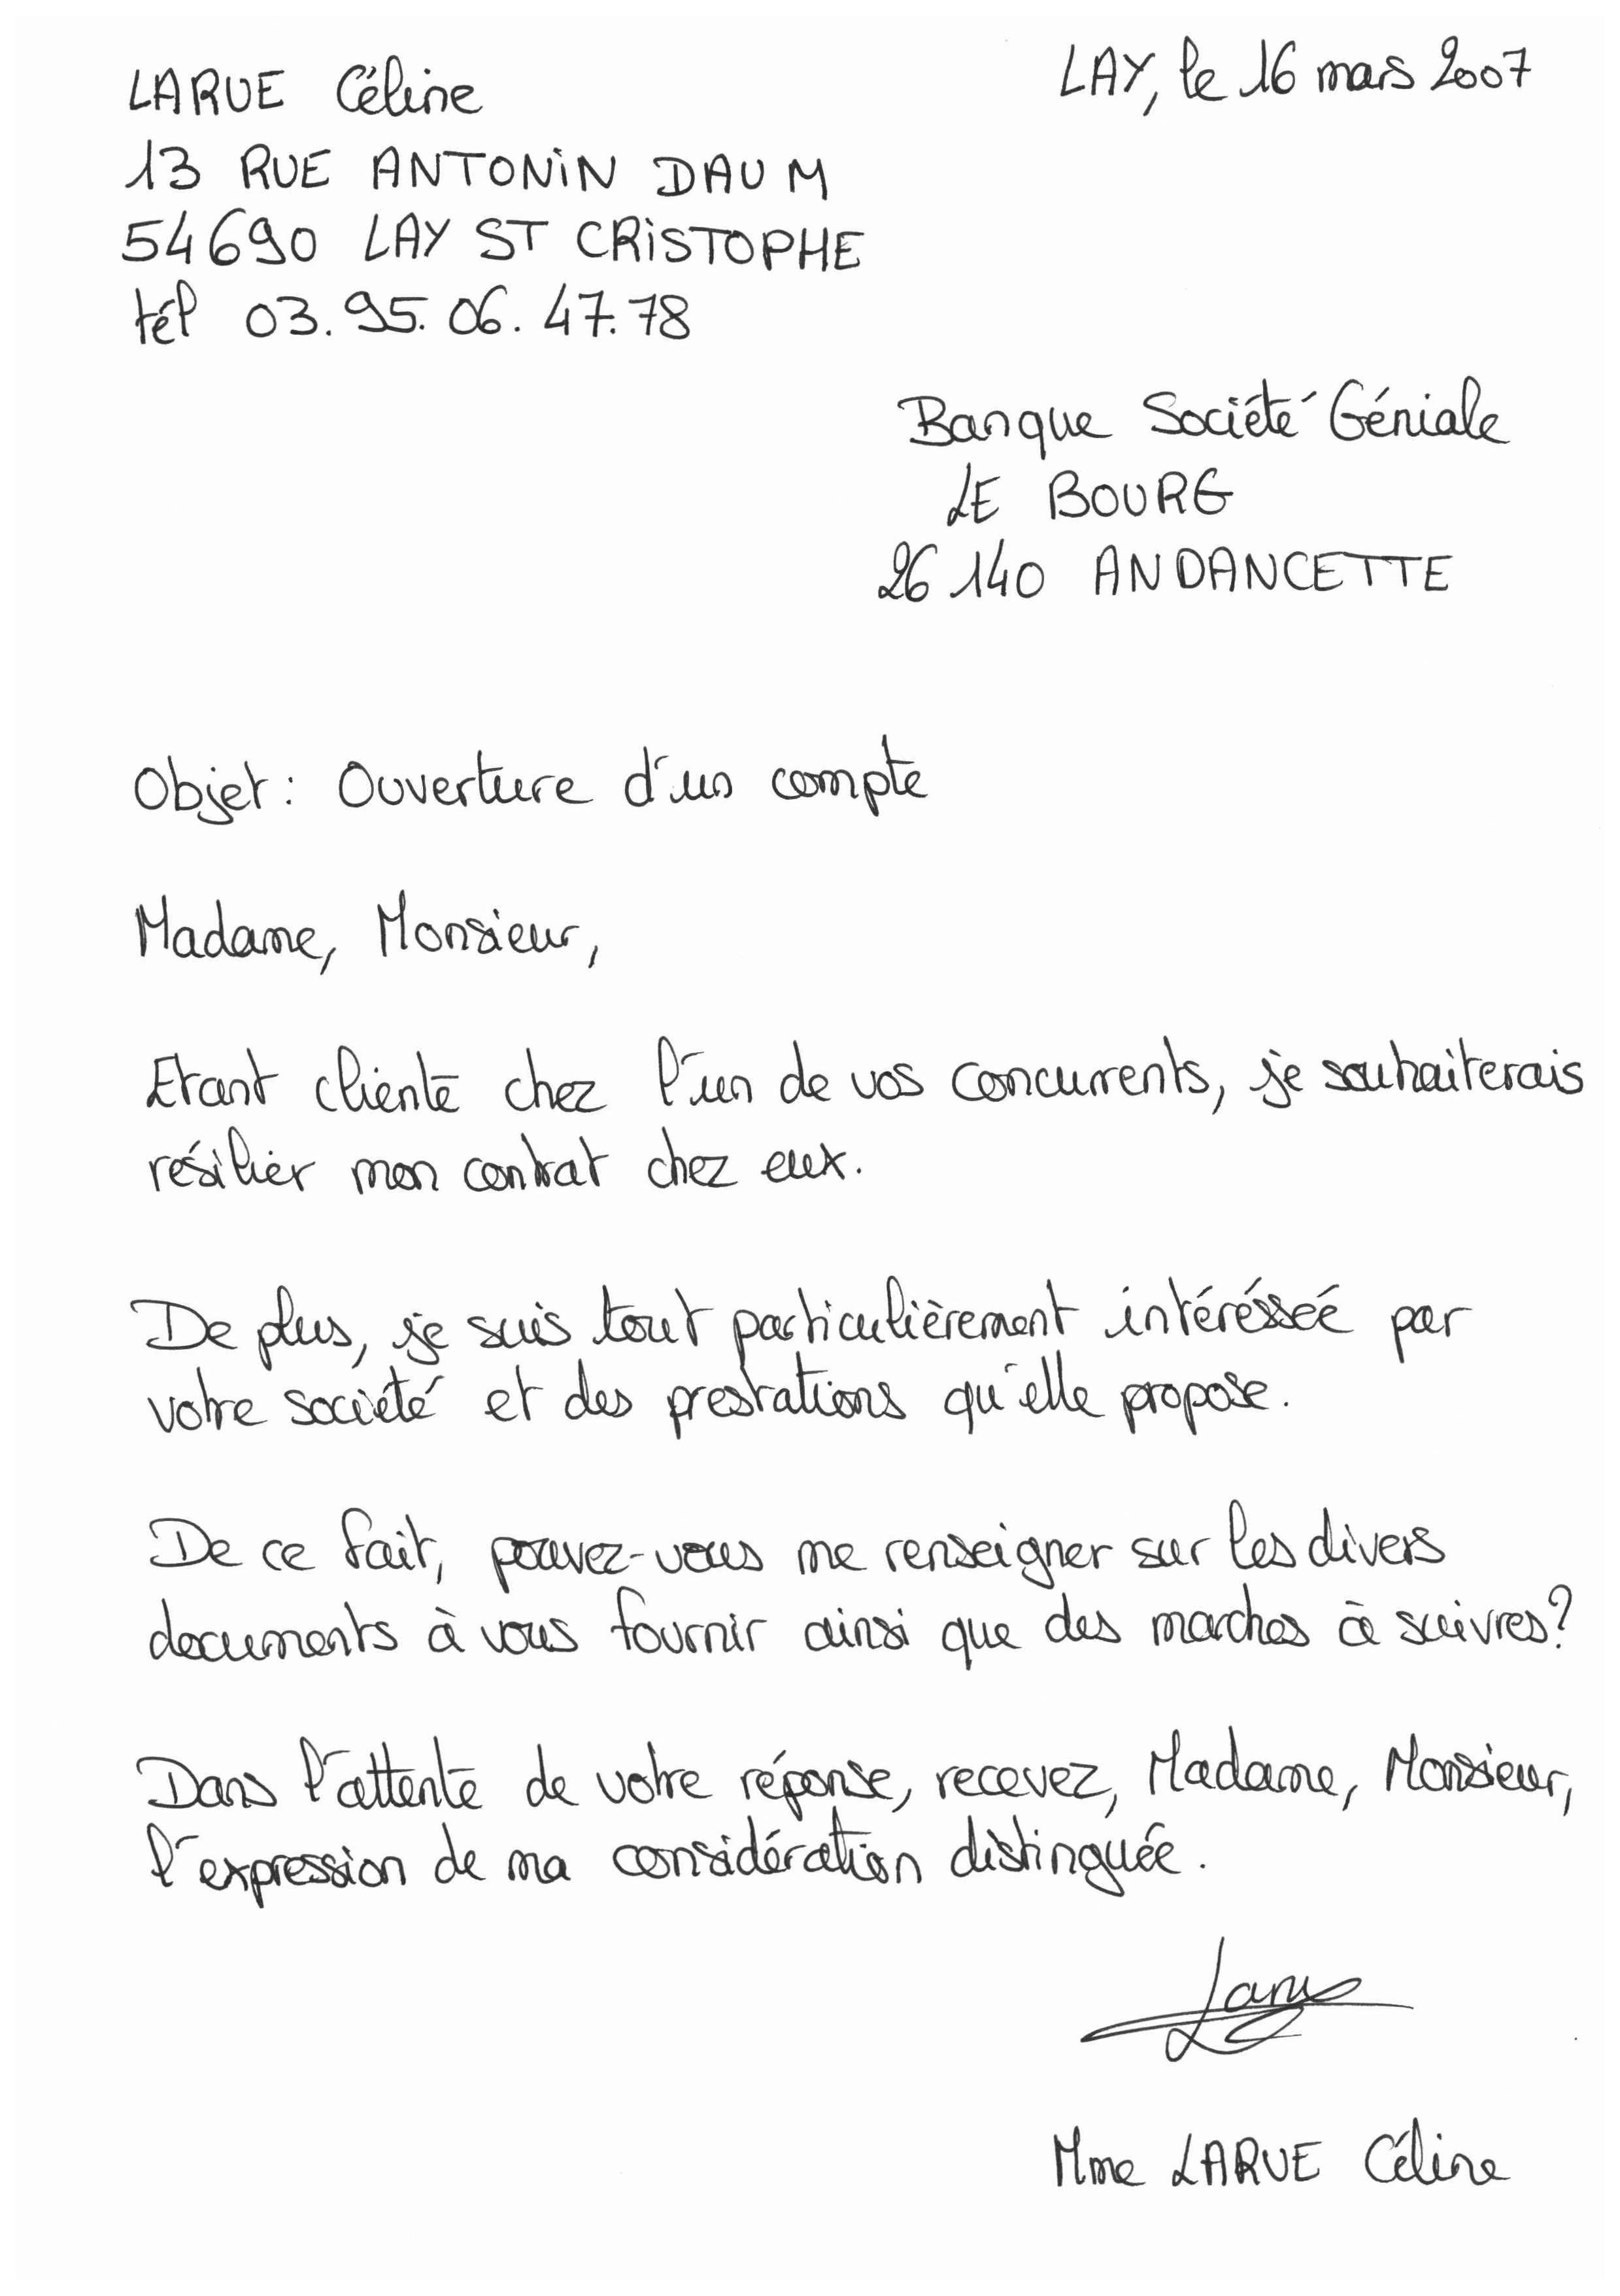 LARUE Céline
LAY, le 16 mars 2007
13 RUE ANTONIN DAUM
54690 LAY ST CRISTOPHE
tél 03.95.06.47.78
Banque Société Géniale
LE BOURG
26140 ANDANCETTE
Objet : Ouverture d'un compte
Madame, Monsieur,
Etant cliente chez l'un de vos concurrents, je souhaiterais
résilier mon contrat chez eux.
De plus, je suis tout particulièrement intéréssée par
votre société et des prestations qu'elle propose.
De ce fait, pouvez-vous me renseigner sur les divers
documents à vous fournir ainsi que des marches à suivres?
Dans l'attente de votre réponse, recevez, Madame, Monsieur,
l'expression de ma considération distinguée.
Larue
Mme LARUE Céline